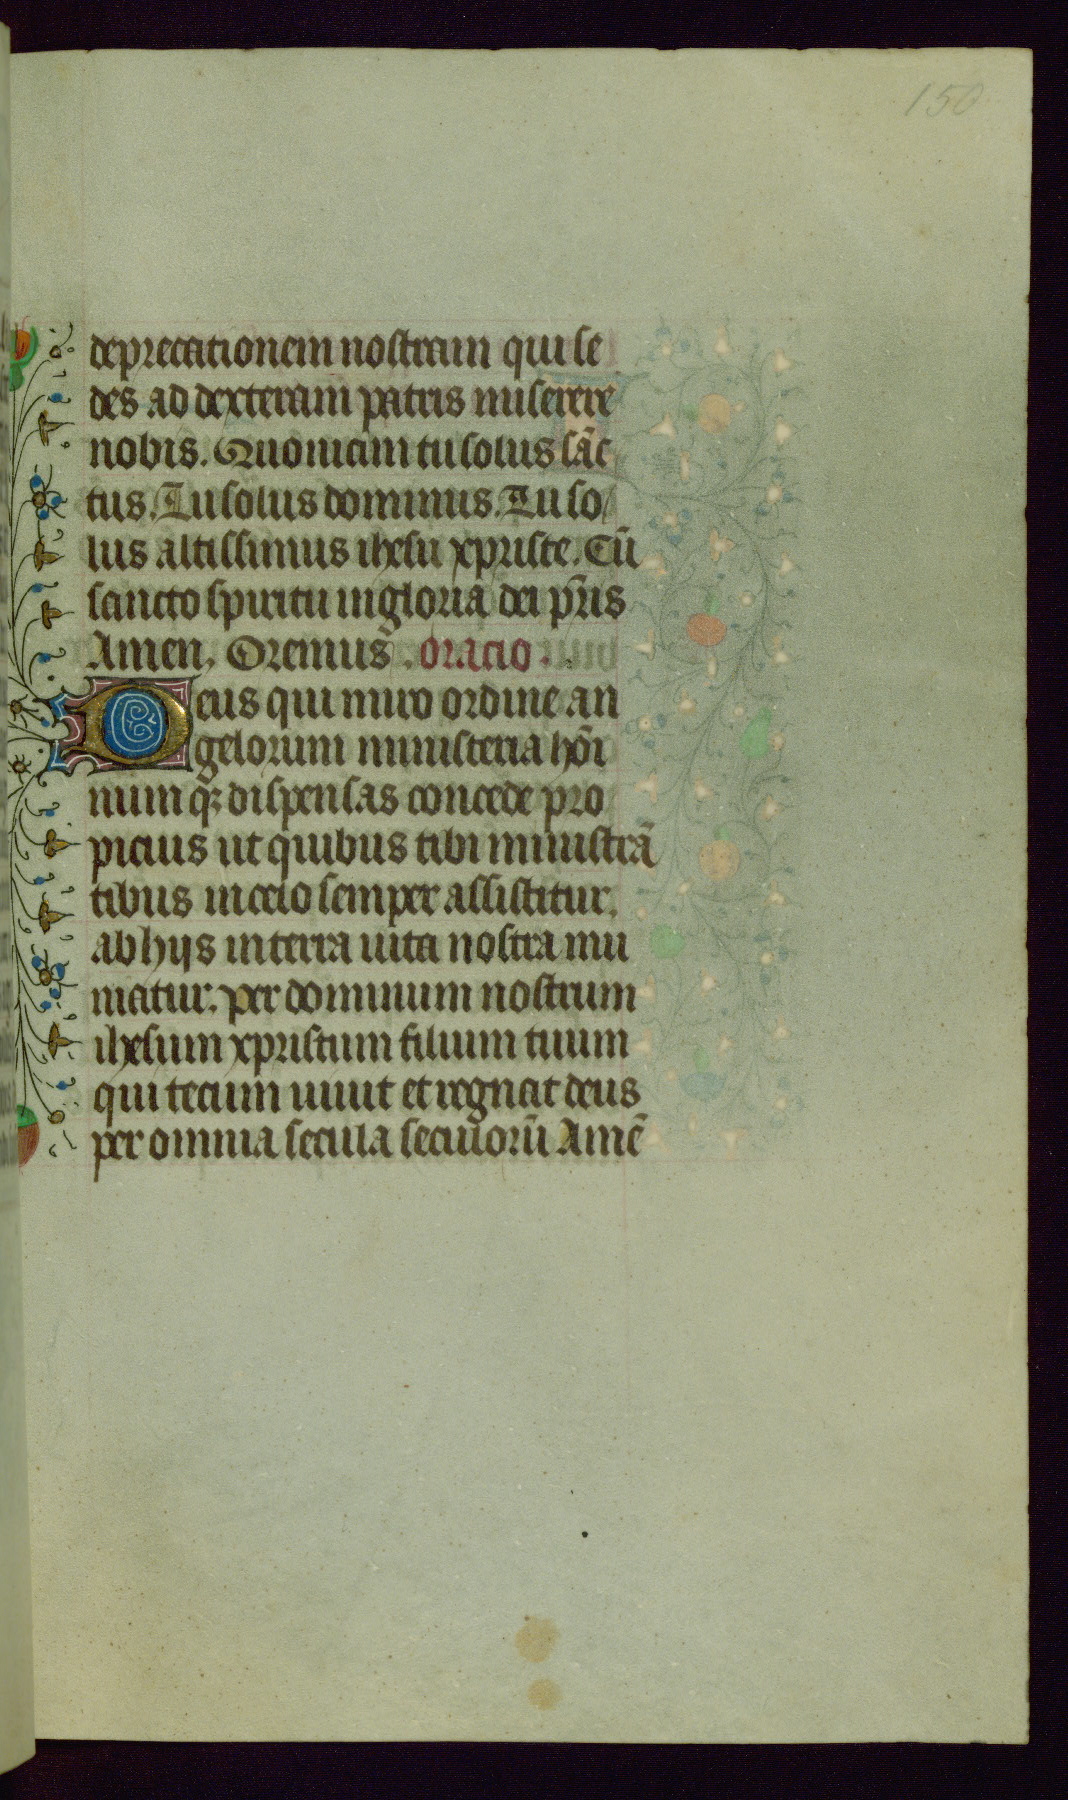 150
deprecationem nostram qui se
des ad dexteram patris miserere
nobis. Quoniam tu solus sãc
tus. Tu solus dominus. Tu so
lus altissimus ihesu xpriste. Cũ
sancto spiritu in gloria dei pr̃is
Amen. Oremus. oracio.
Deus qui miro ordine an
gelorum ministeria hoĩ
num qꝫ dispensas concede pro
picius ut quibus tibi ministrã
tibus in celo semper assistitur.
ab hijs in terra uita nostra mu
niatur. per dominum nostrum
ihesum xpristum filium tuum
qui tecum uiuit et regnat deus
per omnia secula seculorũ Amẽ